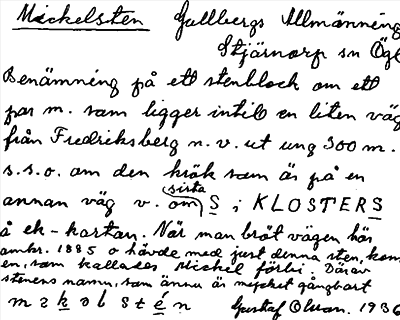 Mickelsten Gullbergs Allmänning
Stjärnorp sn Ögl
Benämning på ett stenblock om ett
par m. som ligger intill en liten väg
från Fredriksberg n. v. ut ung 300 m.
s.s.o. om den krök som är på en
sista
annan väg v. om S i KLOSTERS
å ek-kartan. När man bröt vägen här
omkr. 1885 o hövde med just denna sten, kom
en, som kallades Mickel förbi. Därav
stenens namn, som ännu är mycket gångbart
mɪkəlstén Gustaf Olsson. 1936